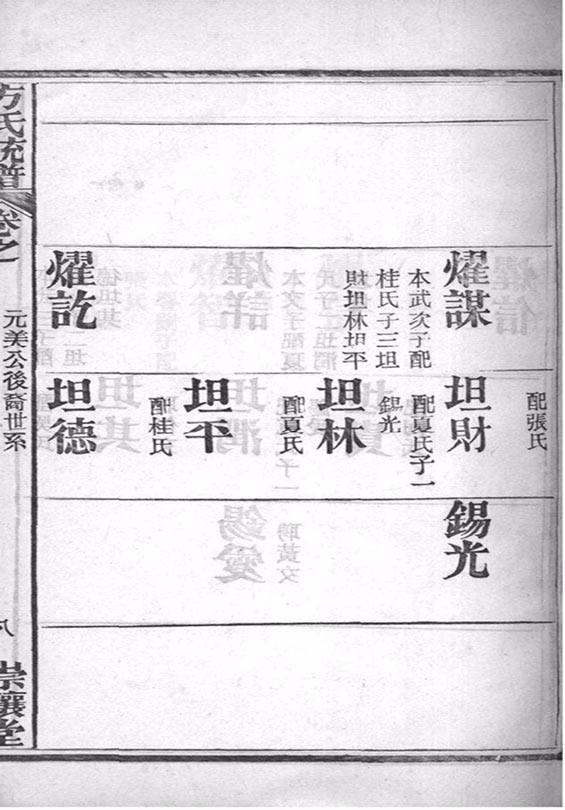 燿謀
本武次子配
桂氏子三坦
財坦林坦平
燿訖
配張氏
坦財
配夏氏子一
錫光
坦林
配夏氏
坦平
配桂氏
坦德
錫光
方氏統譜
卷之
元美公後裔世系
八
崇讓堂